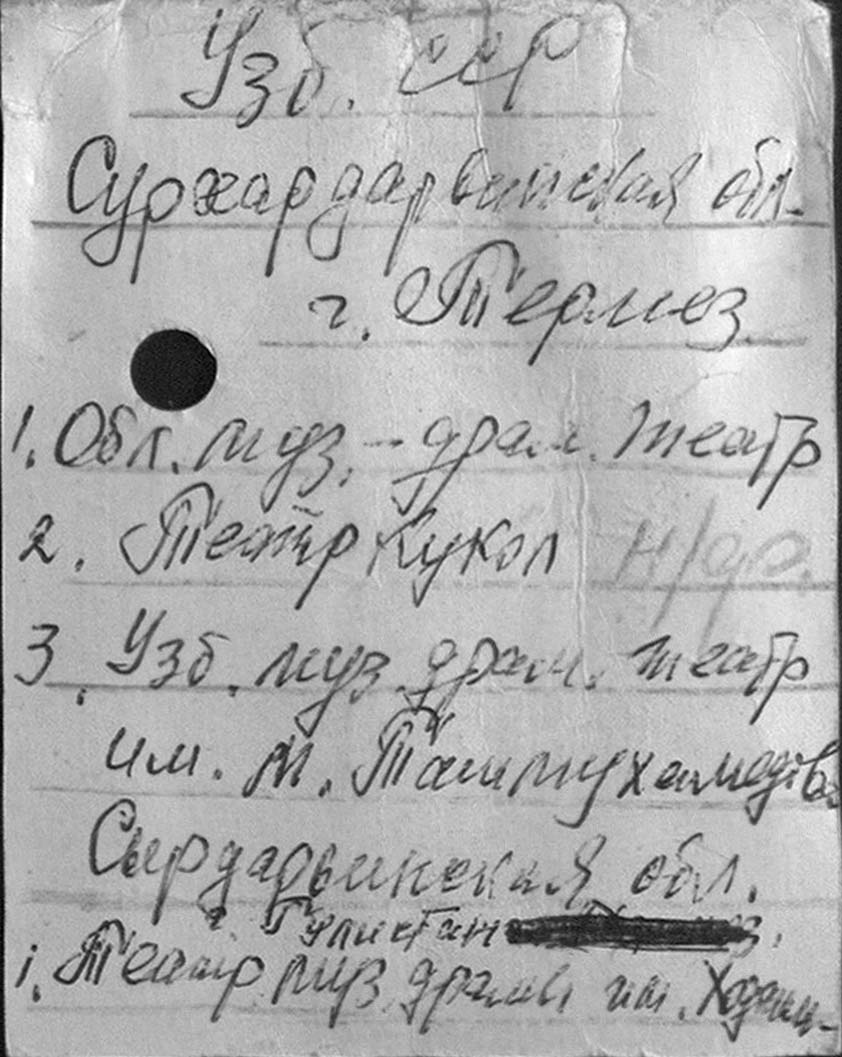 Узб. ССР
Сурхардарьинская обл.
г. Термез
1. Обл. муз. - драм. театр
2. Театр кукол н/др.
3. Узб. муз. драм. театр
им. М. Ташмухамедова
Сырдарьинская обл.
г. Гулистан
1. Театр муз. драмы им. Ходжи-